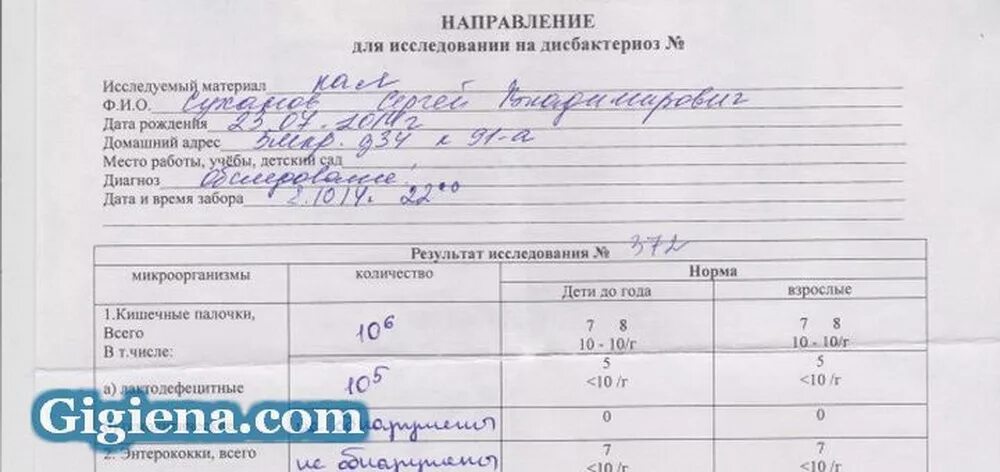 НАПРАВЛЕНИЕ
для исследовании на дисбактериоз №
Исследуемый материал кал
Ф.И.О. Суханов Сергей Владимирович
Дата рождения 23.07.
Домашний адрес 5мкр. д34 к 91-а
Место работы, учёбы, детский сад
Диагноз Обследование
Дата и время забора 2.10.14г. 22⁰⁰
Результат исследования № 372
микроорганизмы количество Норма
Дети до года взрослые
1.Кишечные палочки, 7 8 7 8
Всего 10⁶ 10 - 10/г 10 - 10/г
В т.числе:
5 5
а) лактодефецитные 10⁵ <10 /г <10 /г
Gigiena.com обнаружены 0 0
2. Энтерококки, всего не обнаружены 7 7
<10 /г <10 /г